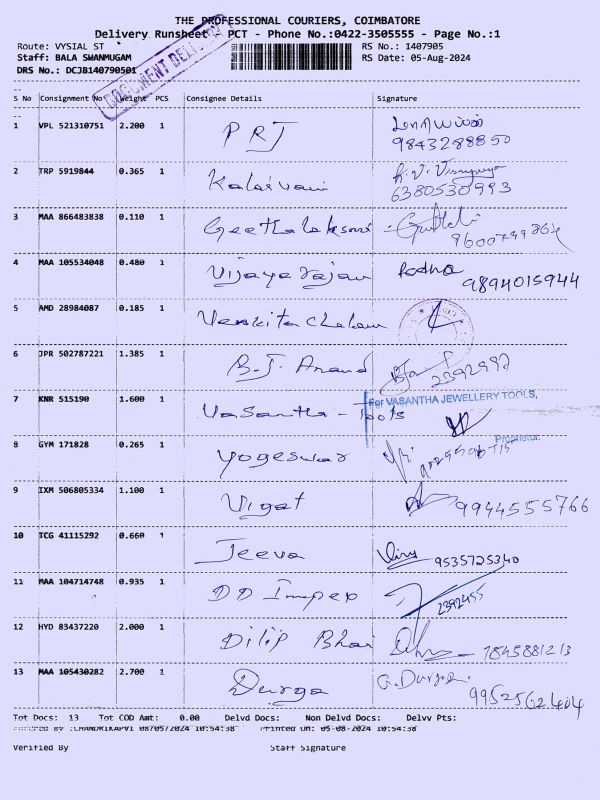 THE PROFESSIONAL COURIERS, COIMBATORE
Delivery Runsheet PCT - Phone No.:0422-3505555 - Page No.:1
Route: VYSIAL ST RS No.: 1407905
Staff: BALA SHANMUGAM RS Date: 05-Aug-2024
DRS No.: DCJB140790501
DOCUMENT DELIVERY
S No Consignment No Weight PCS Consignee Details Signature
1 VPL 521310751 2.200 1 PRJ
9843288850
2 TRP 5919844 0.365 1 Kalaivani
6380530993
3 MAA 866483838 0.110 1 Geethalaksmi
4 MAA 105534048 0.480 1 Vijayarajan Radha 9894015944
5 AMD 28984087 0.185 1 Venkitachalam
6 JPR 502787221 1.385 1 B.J. Anand 2392992
7 KNR 515190 1.600 1 Vasantha - Tools
For VASANTHA JEWELLERY TOOLS,
Proprietor.
8 GYM 171828 0.265 1 Yogeswar
9 IXM 506805334 1.100 1 Vigat 9944555766
10 TCG 41115292 0.660 1 Jeeva 9535725340
11 MAA 104714748 0.935 1 DD Impex 2392455
12 HYD 83437220 2.000 1 Dilip Bhai 7845881213
13 MAA 105430282 2.700 1 Durga G. Durga
9952562404
Tot Docs: 13 Tot COD Amt: 0.00 Delvd Docs: Non Delvd Docs: Delvv Pts:
Printed On: 05-08-2024 10:54:38
Verified By Staff Signature